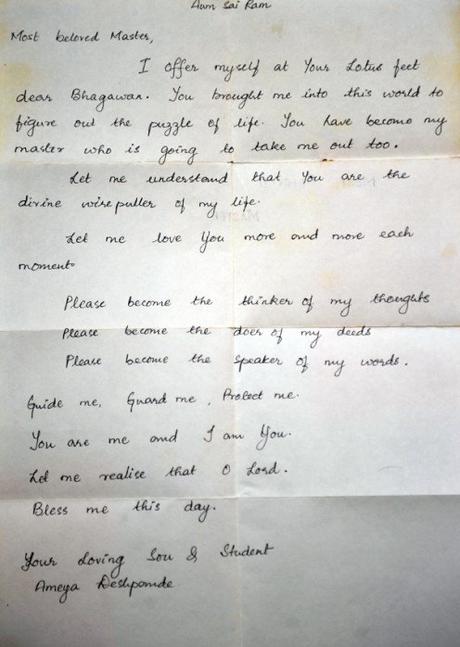 Aum Sai Ram
Most beloved Master,
I offer myself at Your Lotus feet
dear Bhagawan. You brought me into this world to
figure out the puzzle of life. You have become my
master who is going to take me out too.
Let me understand that You are the
divine wirepuller of my life.
Let me love You more and more each
moment.
Please become the thinker of my thoughts
Please become the doer of my deeds
Please become the speaker of my words.
Guide me, Guard me, Protect me.
You are me and I am You.
Let me realise that O Lord.
Bless me this day.
Your Loving Son & Student
Ameya Deshpande